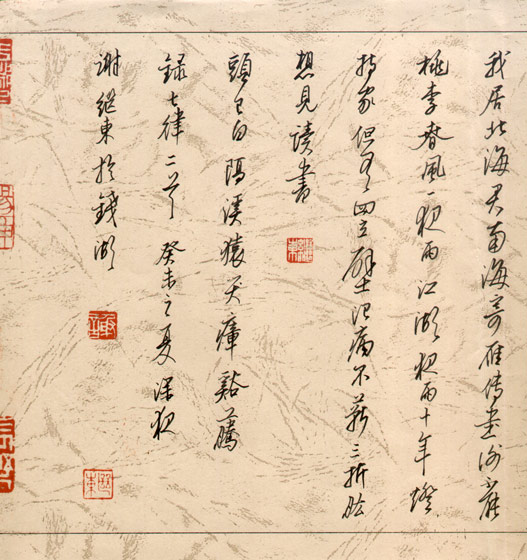 我居北海君南海寄雁传書谢不能
桃李春風一夜雨江湖夜雨十年燈
持家但有四立壁治病不蕲三折肱
想見读書
頭已白隔溪猿哭瘴谿藤
録七律二首 癸未之夏深夜
谢继東於錢湖